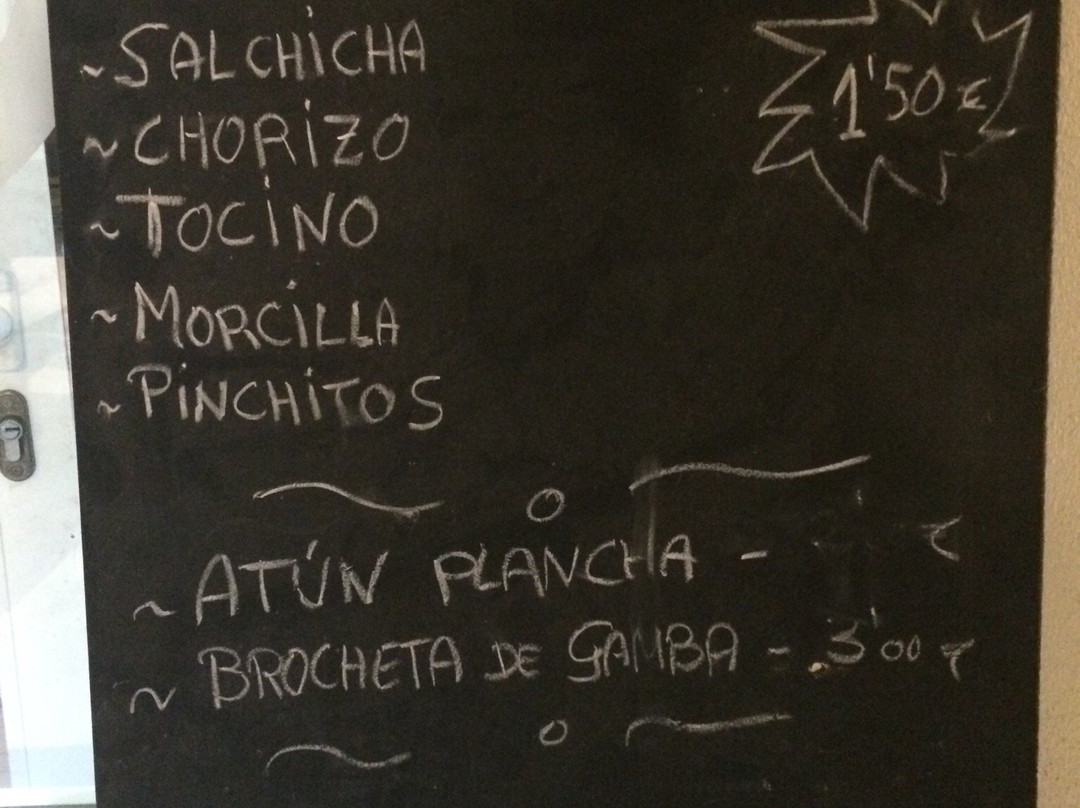 ~ SALCHICHA
1'50 €
~ CHORIZO
~ TOCINO
~ MORCILLA
~ PINCHITOS
~ ATÚN PLANCHA -
~ BROCHETA DE GAMBA - 3'00 €